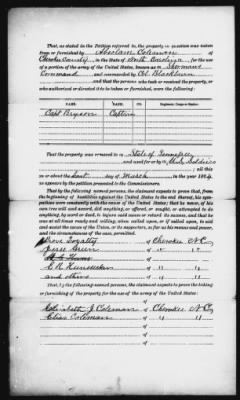 That, as stated in the Petition referred to, the property in question was taken
from or furnished by Absolam Coleman of
Cherokee County, in the State of North Carolina, for the use
of a portion of the army of the United States, known as
Command and commanded by Col. Blackburn
and that the persons who took or received the property, or
who authorized or directed it to be taken or furnished, were the following:
NAME. RANK. CO. Regiment, Corps or Station.
Capt Bryson Captain
That the property was removed to State of Tennessee
and used for or by Soldiers
; all this
on or about the last day of March in the year 1864,
as appears by the petition presented to the Commissioners.
That by the following-named persons, the claimant expects to prove that, from
the beginning of hostilities against the United States to the end thereof, his sym-
pathies were constantly with the cause of the United States; that he never, of his
own free will and accord, did anything, or offered, or sought, or attempted to do
anything, by word or deed, to injure said cause or retard its success, and that he
was at all times ready and willing, when called upon, or if called upon, to aid
and assist the cause of the Union, or its supporters, so far as his means and power,
and the circumstances of the case, permitted.
Loyalty of Cherokee N.C.
Green of " "
of
of " "
and others of " "
That, by the following-named persons, the claimant expects to prove the taking
or furnishing of property for the use of the army of the United States:
of
Elizabeth J Coleman of Cherokee N.C.
Elias Coleman of " "
of
of
of